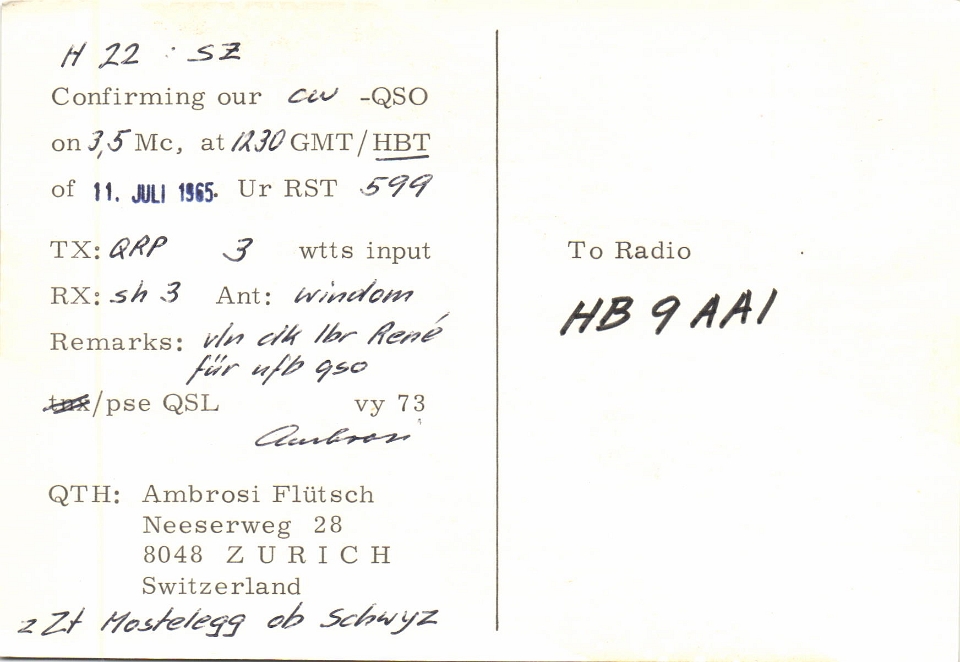 H 22 SZ
Confirming our cw -QSO
on 3,5 Mc, at 1230 GMT/HBT
of 11. JULI 1965. Ur RST 599
TX: QRP 3 wtts input
RX: sh 3 Ant: windom
Remarks: vln dk lbr René
für ufb qso
tnx/pse QSL vy 73
Ambrosi
QTH: Ambrosi Flütsch
Neeserweg 28
8048 ZURICH
Switzerland
z Zt Mostelegg ob Schwyz
To Radio
HB 9 AAI